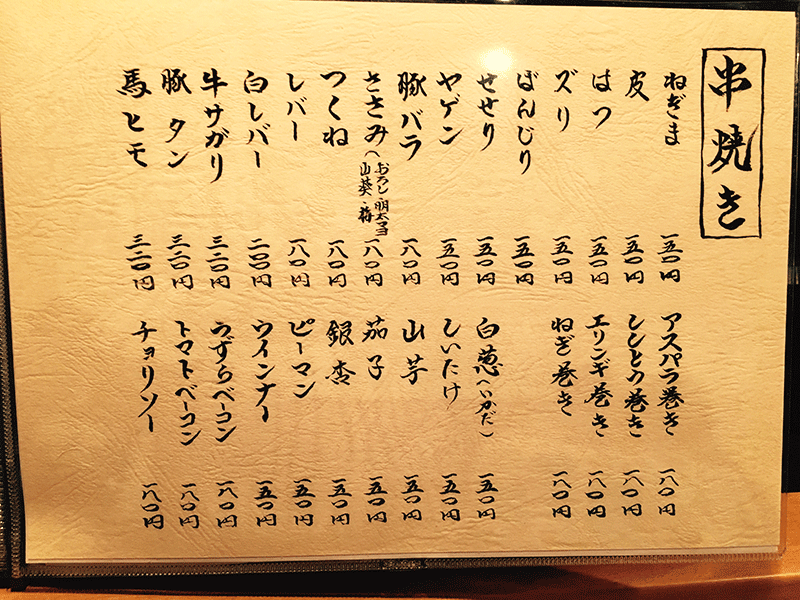 串焼き
ねぎま 一五〇円
皮 一五〇円
はつ 一五〇円
ズリ 一五〇円
ぼんじり 一五〇円
せせり 一五〇円
ヤゲン 一五〇円
豚バラ 一八〇円
ささみ(おろし・明太マヨ 山葵・梅 一八〇円
つくね 一八〇円
レバー 一八〇円
白レバー 二〇〇円
牛サガリ 三二〇円
豚タン 三二〇円
馬ヒモ 三二〇円
アスパラ巻き 一八〇円
ししとう巻き 一八〇円
エリンギ巻き 一八〇円
ねぎ巻き 一八〇円
白葱(いかだ) 一五〇円
しいたけ 一五〇円
山芋 一五〇円
茄子 一五〇円
銀杏 一五〇円
ピーマン 一五〇円
ウインナー 一五〇円
うずらベーコン 一八〇円
トマトベーコン 一八〇円
チョリソー 一八〇円